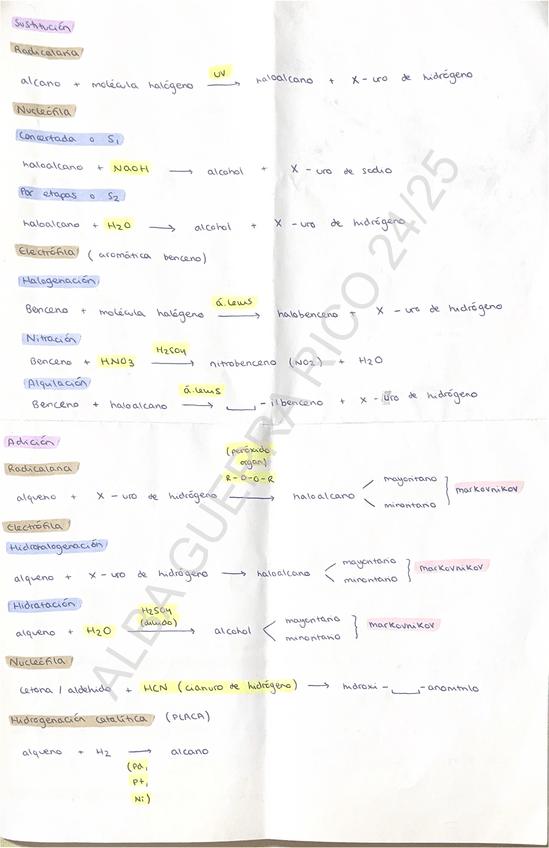 Sustitución
Radicalaria
alcano + molécula halógeno UV → haloalcano + X-uro de hidrógeno
Nucleófila
Concertada o S1
haloalcano + NaOH → alcohol + X-uro de sodio
Por etapas o S2
haloalcano + H2O → alcohol + X-uro de hidrógeno
Electrófila (aromática benceno)
Halogenación
Benceno + molécula halógeno á.Lewis → halobenceno + X-uro de hidrógeno
Nitración
Benceno + HNO3 H2SO4 → nitrobenceno (NO2) + H2O
Alquilación
Benceno + haloalcano á.Lewis → ___-ilbenceno + X-uro de hidrógeno
Adición
Radicalaria
(peróxido organ) R-O-O-R
alqueno + X-uro de hidrógeno → haloalcano < mayoritario minoritario } markovnikov
Electrófila
Hidrohalogenación
alqueno + X-uro de hidrógeno → haloalcano < mayoritario minoritario } markovnikov
Hidratación
alqueno + H2O H2SO4 (diluido) → alcohol < mayoritario minoritario } markovnikov
Nucleófila
cetona / aldehido + HCN (cianuro de hidrógeno) → hidroxi-___-anonitrilo
Hidrogenación catalítica (PLACA)
alqueno + H2 → alcano
(Pd,
Pt,
Ni)
ALBA GUERRA RICO 24/25